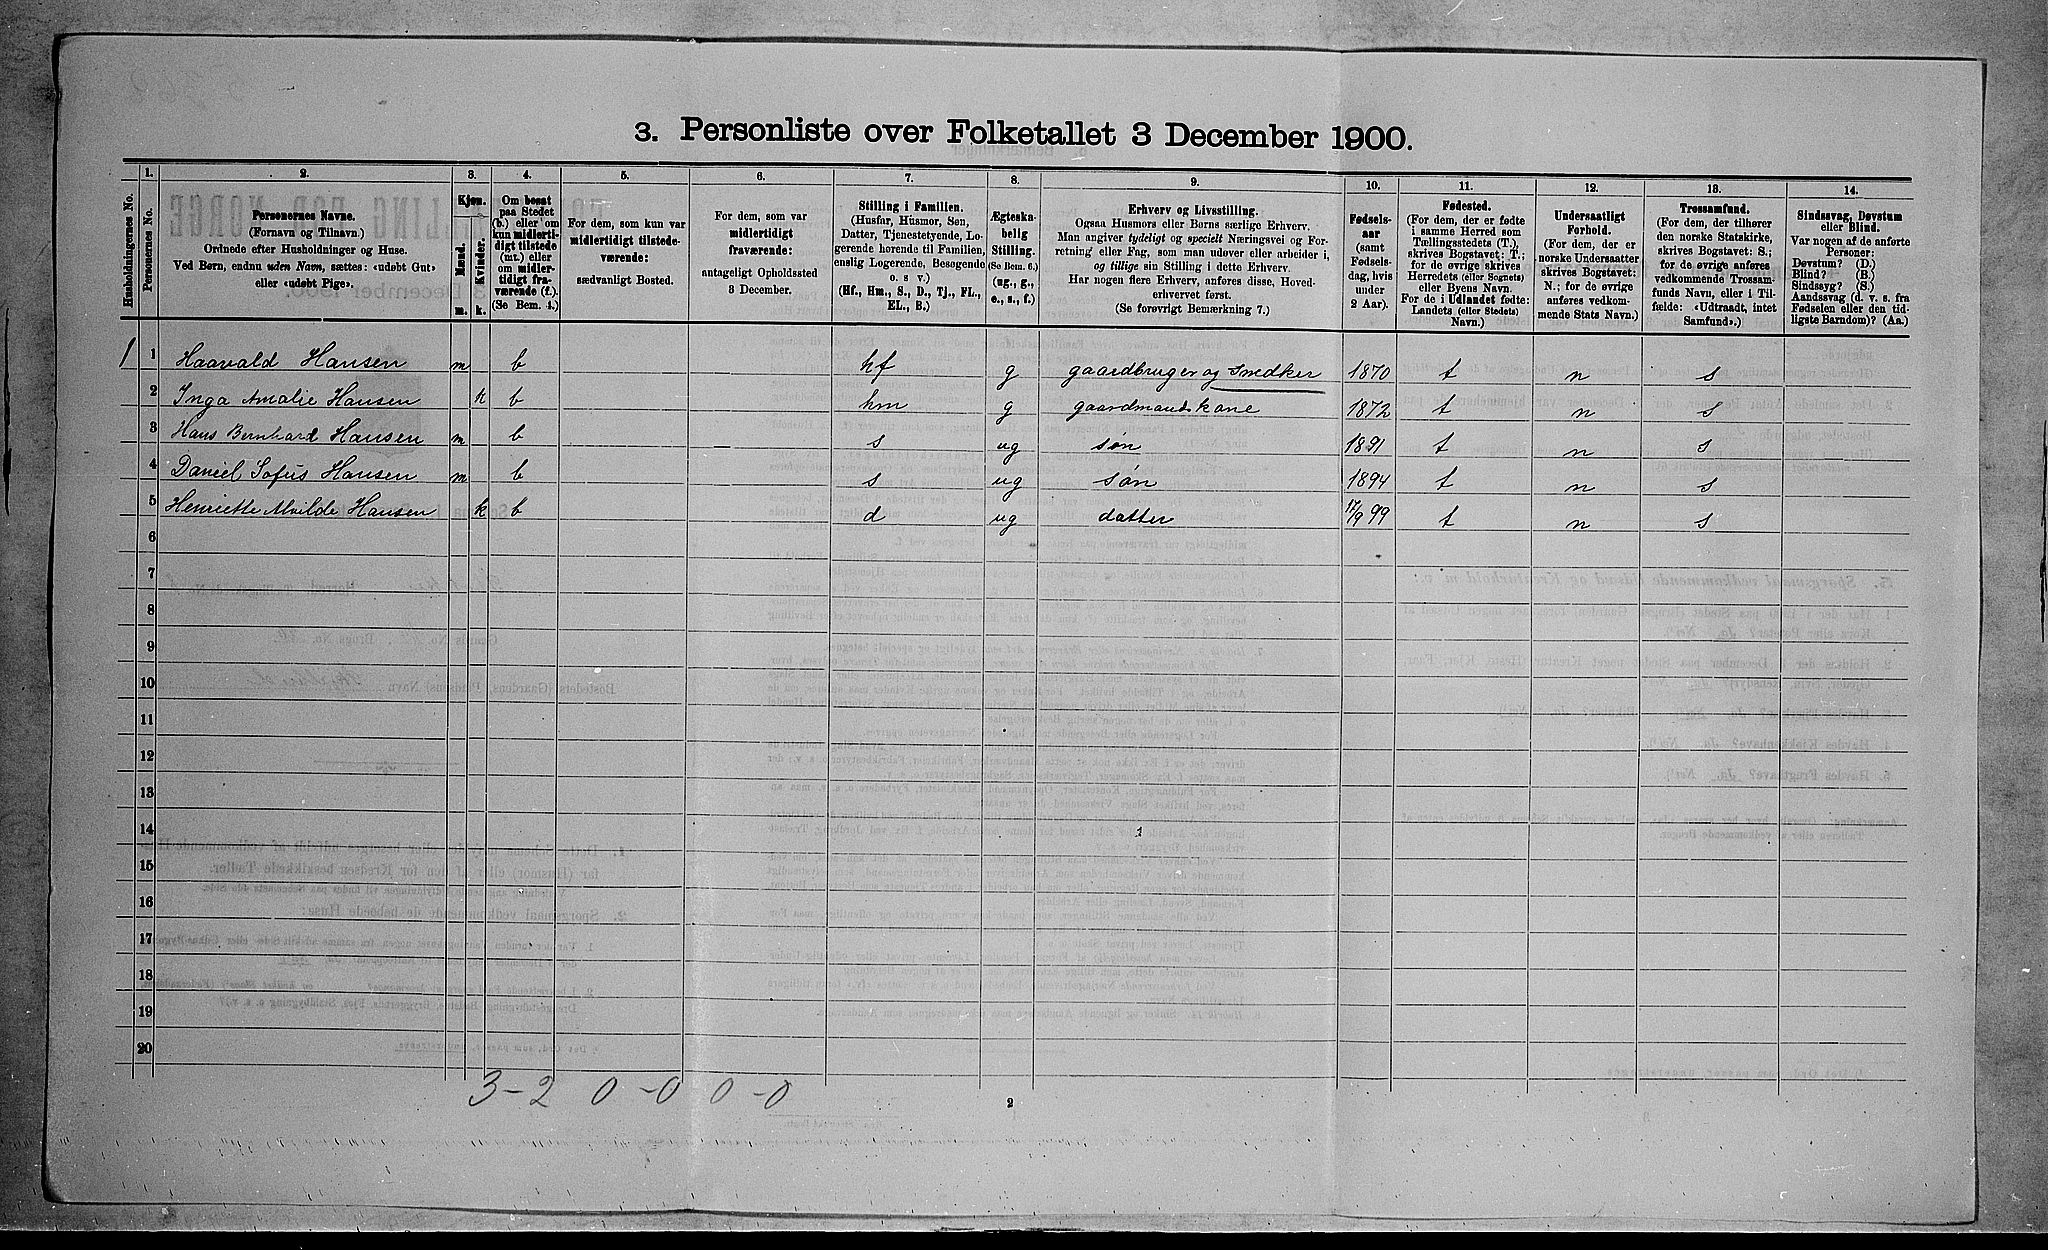 3. Personliste over Folketallet 3 December 1900.
1. 2. 3. 4. 5. 6. 7. 8. 9. 10. 11. 12. 13. 14.
Husholdningernes No.
Personernes No.
Personernes Navne.
(Fornavn og Tilnavn.)
Ordnede efter Husholdninger og Huse.
Ved Børn, endnu uden Navn, sættes: «udøbt Gut»
eller «udøbt Pige».
Kjøn.
Mænd.
Kvinder.
m. k.
Om bosat
paa Stedet
(b.) eller om
kun midlerti-
digt tilstede
(mt.) eller
om midler-
tidigt fra-
værende (f.).
(Se Bem. 4.)
For dem, som kun var
midlertidigt tilstede-
værende:
sædvanligt Bosted.
For dem, som var
midlertidigt
fraværende:
antageligt Opholdssted
3 December.
Stilling i Familien.
(Husfar, Husmor, Søn,
Datter, Tjenestetyende, Lo-
gerende hørende til Familien,
enslig Logerende, Besøgende
o. s. v.)
(Hf., Hm., S., D., Tj., FL.,
EL., B.)
Ægteska-
belig
Stilling.
(Se Bem. 6.)
(ug., g.,
e., s., f.)
Erhverv og Livsstilling.
Ogsaa Husmors eller Børns særlige Erhverv.
Man angiver tydeligt og specielt Næringsvei og For-
retning eller Fag, som man udøver eller arbeider i,
og tillige sin Stilling i dette Erhverv.
Har nogen flere Erhverv, anføres disse, Hoved-
erhvervet først.
(Se forøvrigt Bemærkning 7.)
Fødsels-
aar
(samt
Fødsels-
dag, hvis
under
2 Aar).
Fødested.
(For dem, der er fødte
i samme Herred som
Tællingsstedets (T.),
skrives Bogstavet: T.;
for de øvrige skrives
Herredets (eller Sognets)
eller Byens Navn.
For de i Udlandet fødte:
Landets (eller Stedets)
Navn.)
Undersaatligt
Forhold.
(For dem, der er
norske Undersaatter
skrives Bogstavet:
N.; for de øvrige
anføres vedkom-
mende Stats Navn.)
Trossamfund.
(For dem, der tilhører
den norske Statskirke,
skrives Bogstavet: S.;
for de øvrige anføres
vedkommende Trossam-
funds Navn, eller i Til-
fælde: «Udtraadt, intet
Samfund».)
Sindssvag, Døvstum
eller Blind.
Var nogen af de anførte
Personer:
Døvstum? (D.)
Blind? (B.)
Sindssyg? (S.)
Aandssvag (d. v. s. fra
Fødselen eller den tid-
ligste Barndom)? (Aa.)
1 1 Haavald Hansen m b hf g gaardbruger og Snedker 1870 t n s
2 Inga Amalie Hansen k b hm g gaardmandskone 1872 t n s
3 Hans Bernhard Hansen m b s ug søn 1891 t n s
4 Daniel Sofus Hansen m b s ug søn 1894 t n s
5 Henriette Alvilde Hansen k b d ug datter 17/9 99 t n s
6
7
8
9
10
11
12
13
14
15
16
17
18
19
20
3-2 0-0 0-0
2